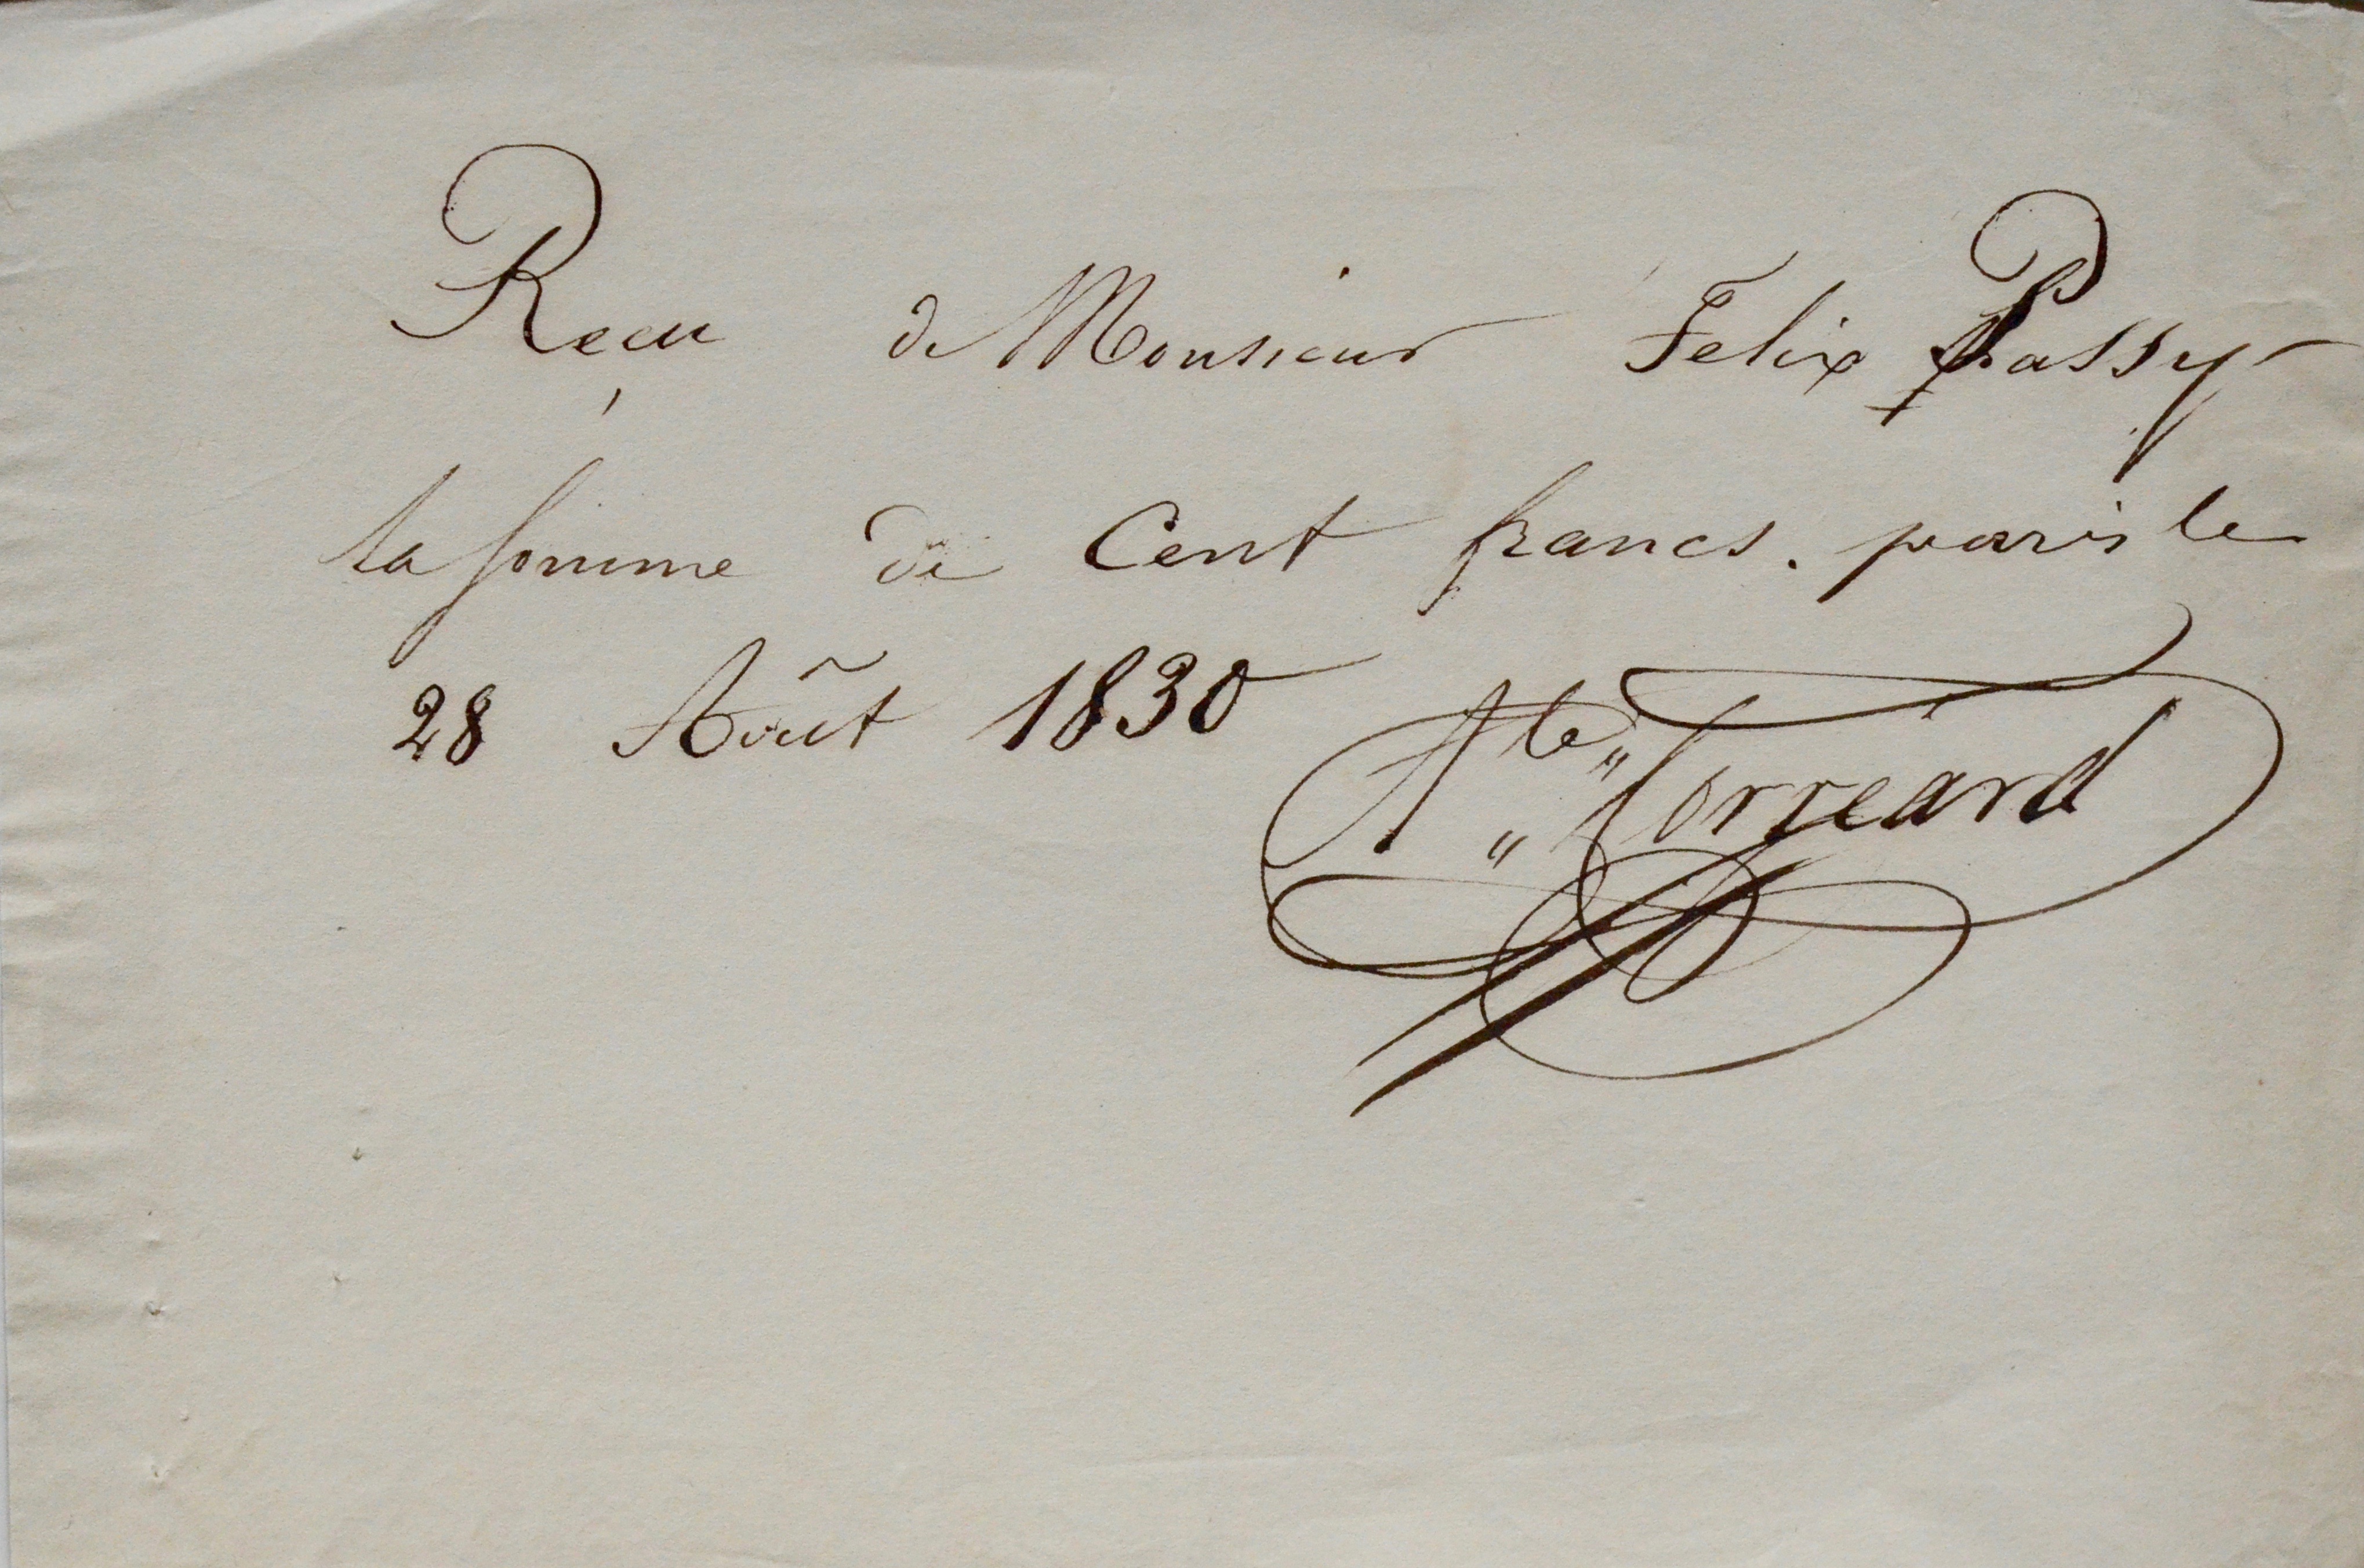 Reçu de Monsieur Felix Passy
la somme de Cent francs. paris le
28 Août 1830
Ate Torreard